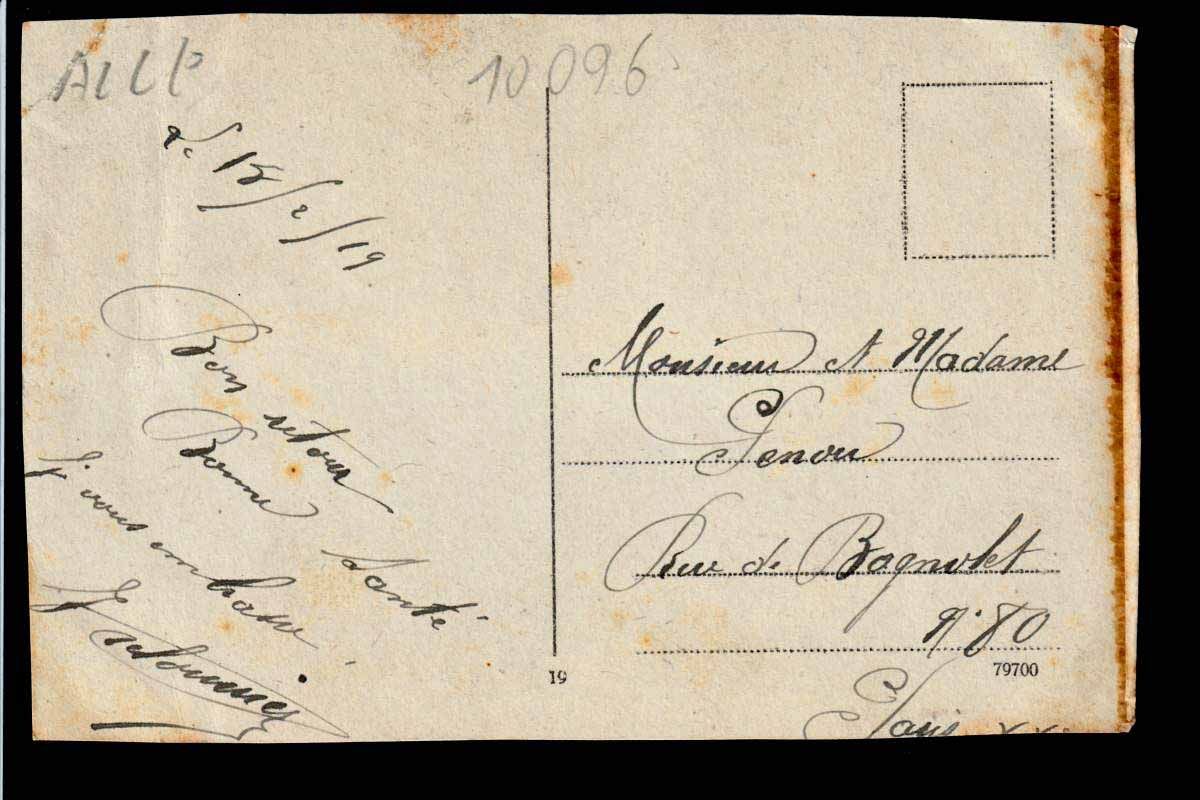 10096
Le 15/2/19
Bon retour
Bonne Santé
Je vous embrasse
Monsieur et Madame
Rue de Bagnolet
N° 80
Paris XX
19
79700